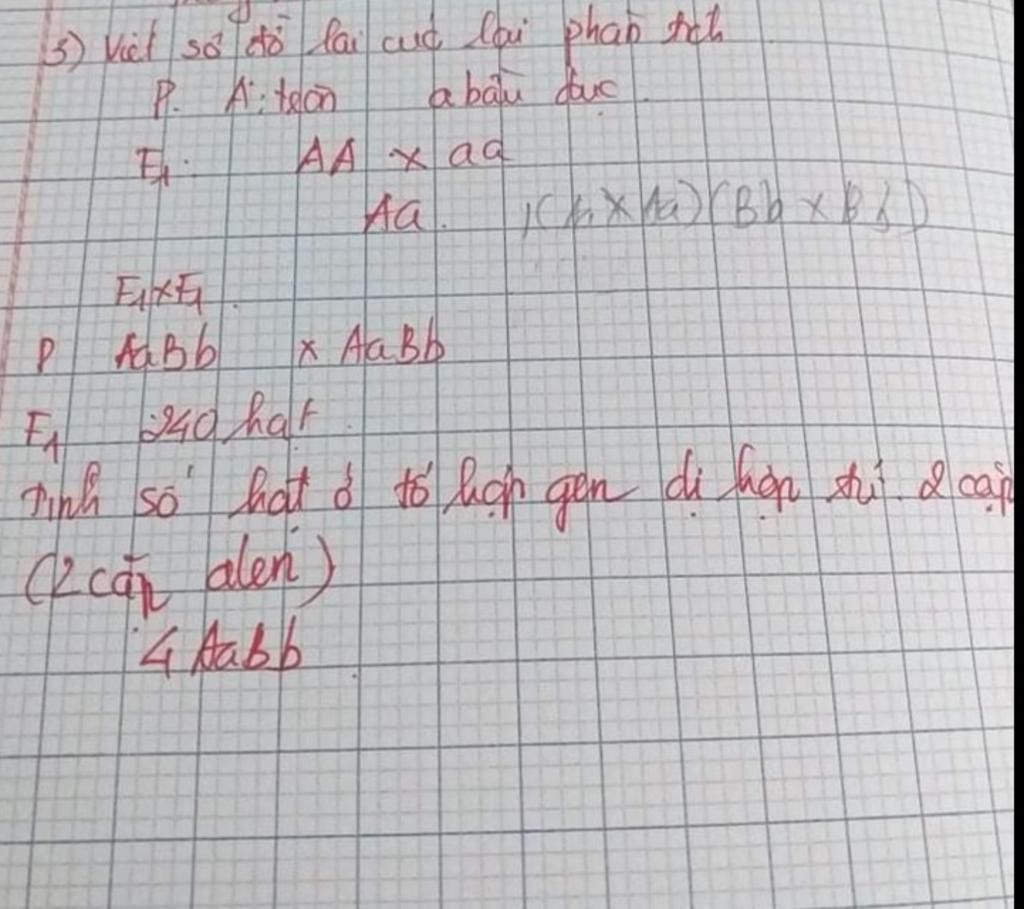 3) Viết sơ đồ lai của lai phân tích
P. A: tròn a bầu dục.
F1: AA x aa
Aa. (Aa x Aa)(Bb x Bb)
F1 x F1.
P AaBb x AaBb
F1 240 hạt.
Tính số hạt ở tổ hợp gen dị hợp tử 2 cặp
(2 cặp alen)
4 AaBb